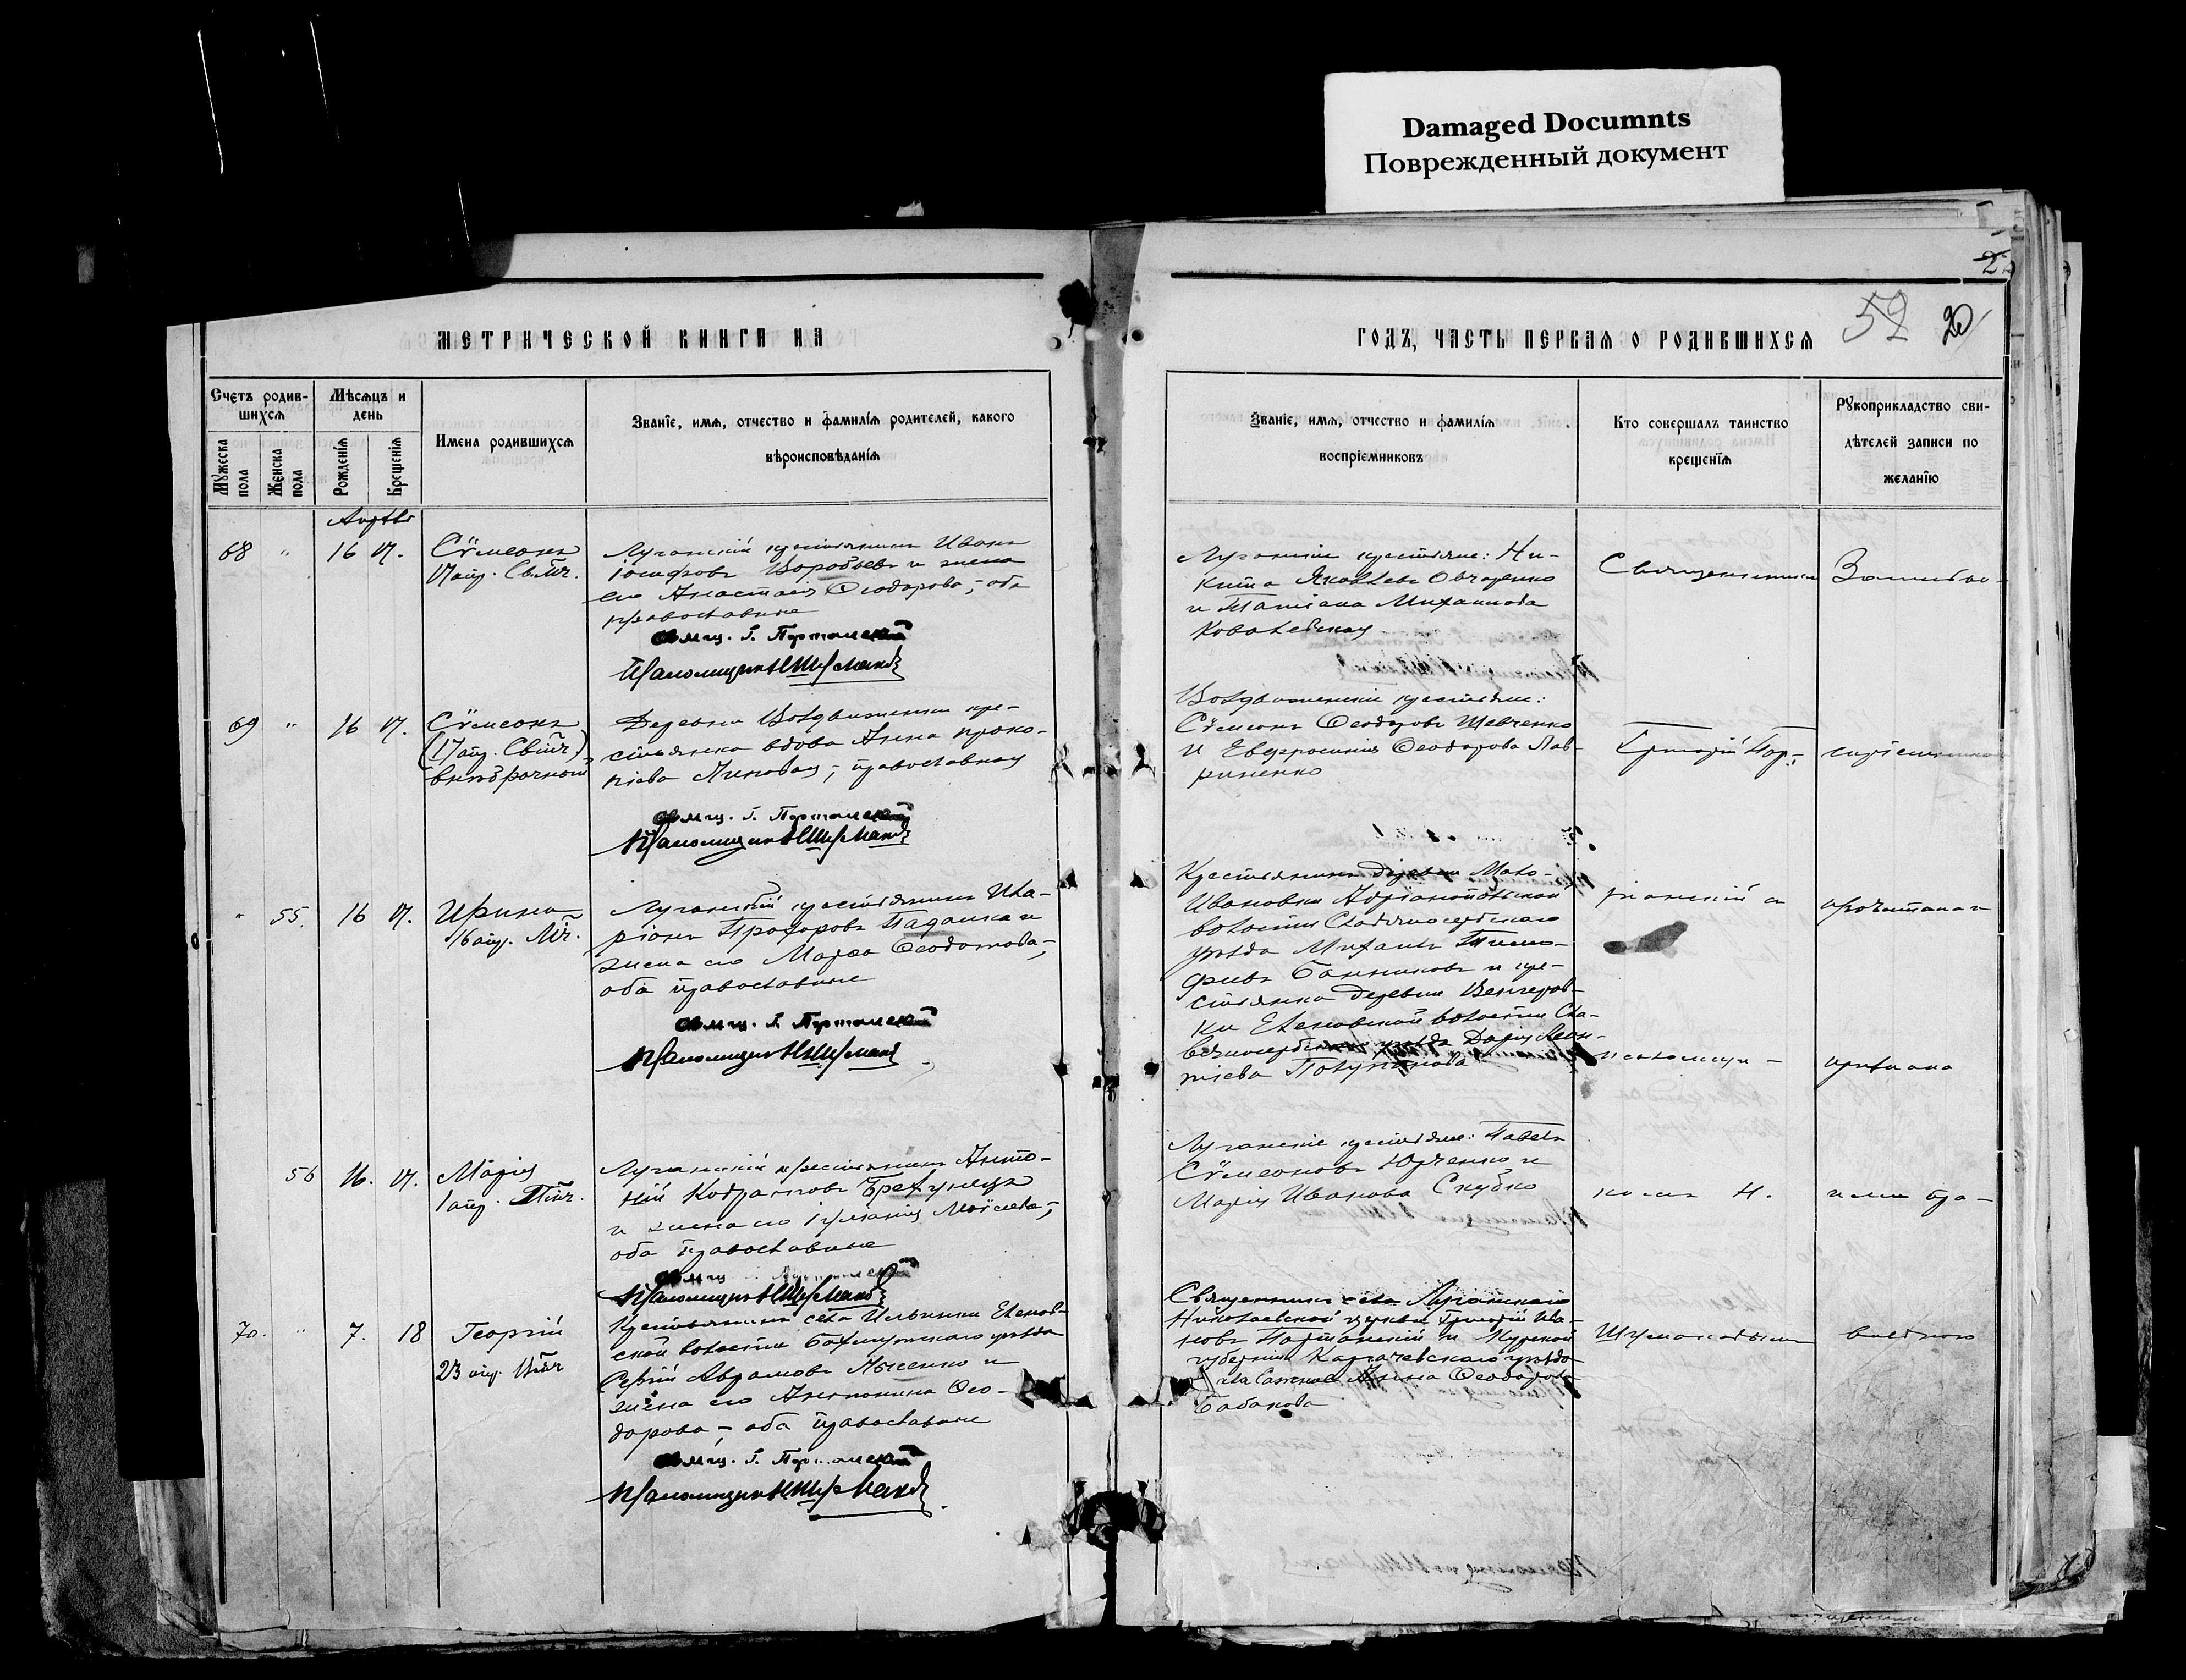 Damaged Documnts
Поврежденный документ
52 20
МЕТРИЧЕСКОЙ КНИГИ НА
ГОДЪ, ЧАСТЬ ПЕРВАЯ О РОДИВШИХСЯ
Счетъ родив-
шихся
Мужеска пола
Женска пола
Мѣсяцъ и
день
Рожденія
Крещенія
Имена родившихся
Званіе, имя, отчество и фамилія родителей, какого
вѣроисповѣданія
Званіе, имя, отчество и фамилія
воспріемниковъ
Кто совершалъ таинство
крещенія
Рукоприкладство сви-
дѣтелей записи по
желанію
68 " 16 17.
Сѵмеонъ
17 апр. Св.мч.
Луганскій крестьянинъ Иванъ
Іосифовъ Воробьевъ и жена
его Анастасія Ѳеодорова, оба
православные
Свящ. Г. Портанскій
Псаломщикъ Н Шумаковъ
Луганскіе крестьяне: Ни-
кита Яковлевъ Овчаренко
и Татіана Михаилова
Ковалевская
Священникъ
69 " 16 17.
Сѵмеонъ
(17 апр. Свмч.)
внѣбрачный
Деревни Воздвиженки кре-
стьянка вдова Анна Проко-
піева, православная
Свящ. Г. Портанскій
Псаломщикъ Н Шумаковъ
Воздвиженскіе крестьяне:
Сѵмеонъ Ѳеодоровъ Шевченко
и Евфросинія Ѳеодорова Лав-
риненко
Григорій Пор-
" 55. 16 17.
Ирина
16 апр. Мч.
Луганскій крестьянинъ Ила-
ріонъ Прохоровъ Падалка и
жена его Марѳа Ѳеодотова,
оба православные
Свящ. Г. Портанскій
Псаломщикъ Н Шумаковъ
Крестьянинъ деревни Мало-
Ивановки Адріанопольской
волости Славяносербскаго
уѣзда Михаилъ Тимо-
фіевъ Банниковъ и кре-
стьянка деревни Венгеров-
ки Еленовской волости Сла-
вяносербскаго уѣзда Дарія Леон-
тіева
танскій съ
прочитана и
псаломщи-
56 16. 17.
Марія
1 апр.
Луганскій крестьянинъ Анто-
ній Кодратовъ Брехунецъ
и жена его Іуліанія Моѵсеева,
оба православные
Псаломщикъ Н Шумаковъ
Луганскіе крестьяне: Павелъ
Сѵмеоновъ Юрченко и
Марія Иванова Скубко
комъ Н.
70. " 7. 18
Георгій
23 апр.
Крестьянинъ села Ильинки Еленов-
ской волости Бахмутскаго уѣзда
Сергій Аврамовъ Лысенко и
жена его Антонина Ѳео-
дорова, оба православные
Свящ. Г. Портанскій
Псаломщикъ Н Шумаковъ
Священникъ села Луганскаго
Николаевской церкви Григорій Ива-
новъ Портанскій и Курской
губерніи уѣзда
Анна Ѳеодорова
Бабакова
Шумаковымъ